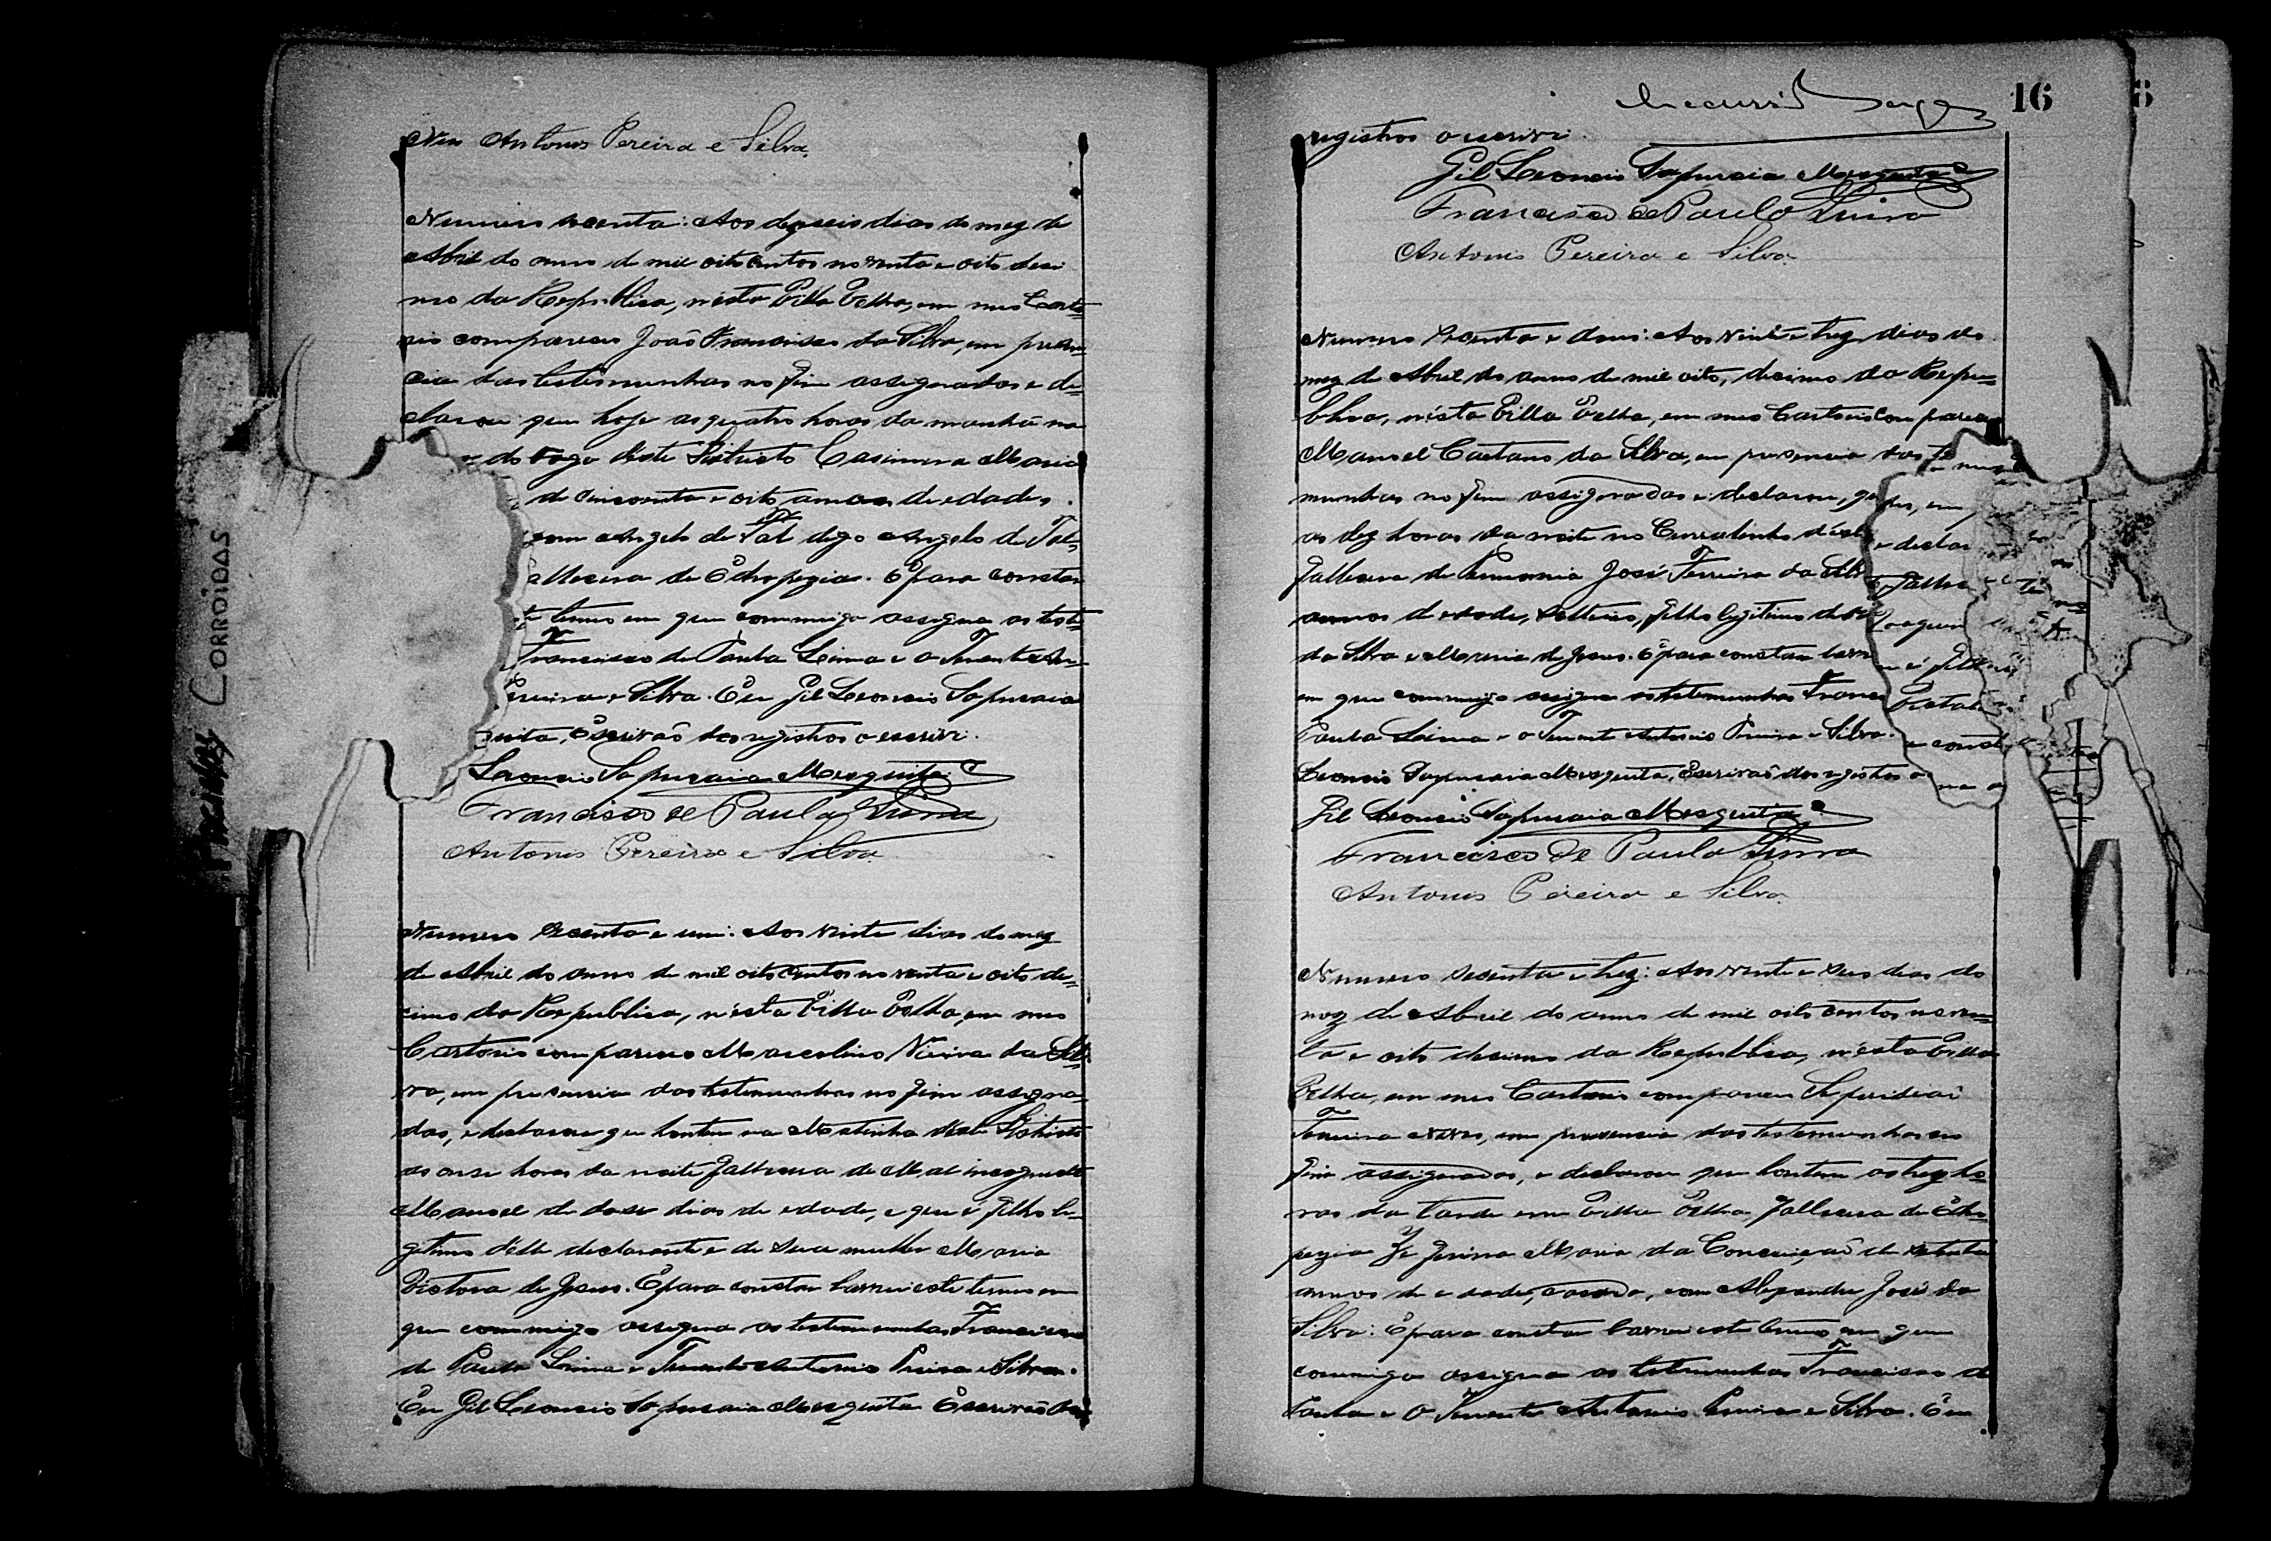 Antonio Pereira e Silva
Numero secenta: Aos dezeseis dias do mez de
Abril do anno de mil oito centos noventa e oito deci
mo da Republica, nésta Villa Velha, em meu Carto=
rio compareceu João Francisco da Silva, em presen=
cia das testemunhas no fim assignadas e de=
clarou que hoje as quatro horas da manhã na
do deste Districto Casimira Maria
de cincoenta e oito annos de edade,
com Angelo de Tal digo Angelo de Tal,
allecera de Edropezia. E para constar
te termo em que commigo assigna as teste=
Francisco de Paula Lima e o Tenente An=
ereira e Silva. Eu Gil Leoncio Sapucaia
quita, Escrivão dos registros o escrivi.
Leoncio Sapucaia Mesquita
Francisco de Paula Lima
Antonio Pereira e Silva
Numero secenta e um: Aos vinte dias do mez
de Abril do anno de mil oito centos noventa e oito de=
cimo da Republica, nésta Villa Velha, em meu
Cartorio compareceu Marcolino Vieira da Sil=
va, em presencia das testemunhas no fim assigna=
das, e declarou que hontem na Matinha deste Districto
as onse horas da noite fallecera de Mal incognito
Manoel de dose dias de edade, e que é filho le=
gitimo d'elle declarante e de sua mulher Maria
Victoria de Jesus. E para constar lavrei este termo em
que commigo assigna as testemunhas Francisco
de Paula Lima e Tenente Antonio Pereira e Silva.
Eu Gil Leoncio Sapucaia Mesquita Escrivão dos
CORROÍDAS
16
8
registros o escrivi.
Gil Leoncio Sapucaia Mesquita
Francisco de Paula Lima
Antonio Pereira e Silva
Numero secenta e dous: Aos vinte e trez dias do
mez de Abril do anno de mil oito, decimo da Repu=
blica, nésta Villa Velha, em meu Cartorio compareceu
Manoel Caetano da Silva, em presencia das te
munhas no fim assignadas e declarou, q
as dez horas da noite no Curralinho d'este
fallecera de Pneumonia José Ferreira da Sil
annos de edade, solteiro, filho legitimo de
da Silva e Maria de Jesus. E para constar lavrei
em que commigo assigna as testemunhas Franc
Paula Lima e o Tenente Antonio Pereira e Silva.
Leoncio Sapucaia Mesquita, Escrivão dos registros o
Gil Leoncio Sapucaia Mesquita
Francisco de Paula Lima
Antonio Pereira e Silva
Numero secenta e trez: Aos vinte e seis dias do
mez de Abril do anno de mil oito centos noven=
ta e oito decimo da Republica, nésta Villa
Velha, em meu Cartorio compareceu
Ferreira Neves, em presencia das testemunhas no
fim assignadas, e declarou que hontem as trez ho=
ras da tarde em Villa Velha, fallecera de Edro=
pezia Maria da Conceição de setenta
annos de edade, casada, com Alexandre José da
Silva: E para constar lavrei este termo em que
commigo assigna as testemunhas Francisco de
Paula e o Tenente Antonio Pereira e Silva. Eu